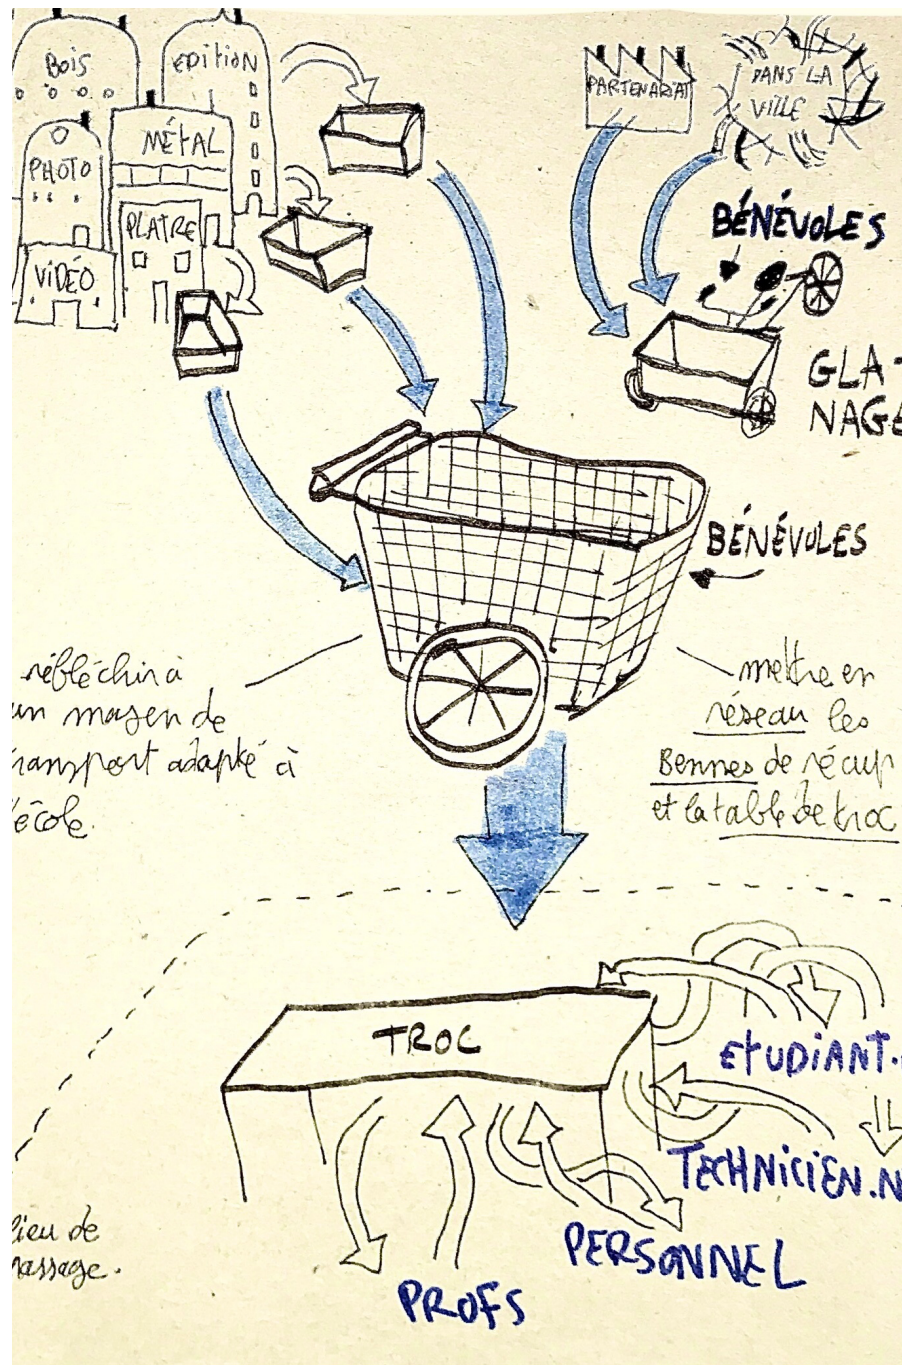 BOIS
EDITION
PARTENARIAT
DANS LA
VILLE
MÉTAL
PHOTO
PLATRE
VIDÉO
BÉNÉVOLES
GLA-
NAGE
BÉNÉVOLES
réfléchir à
un moyen de
transport adapté à
l'école.
mettre en
réseau les
Bennes de récup
et la table de troc
TROC
ETUDIANT.
TECHNICIEN.N
PERSONNEL
PROFS
lieu de
passage.